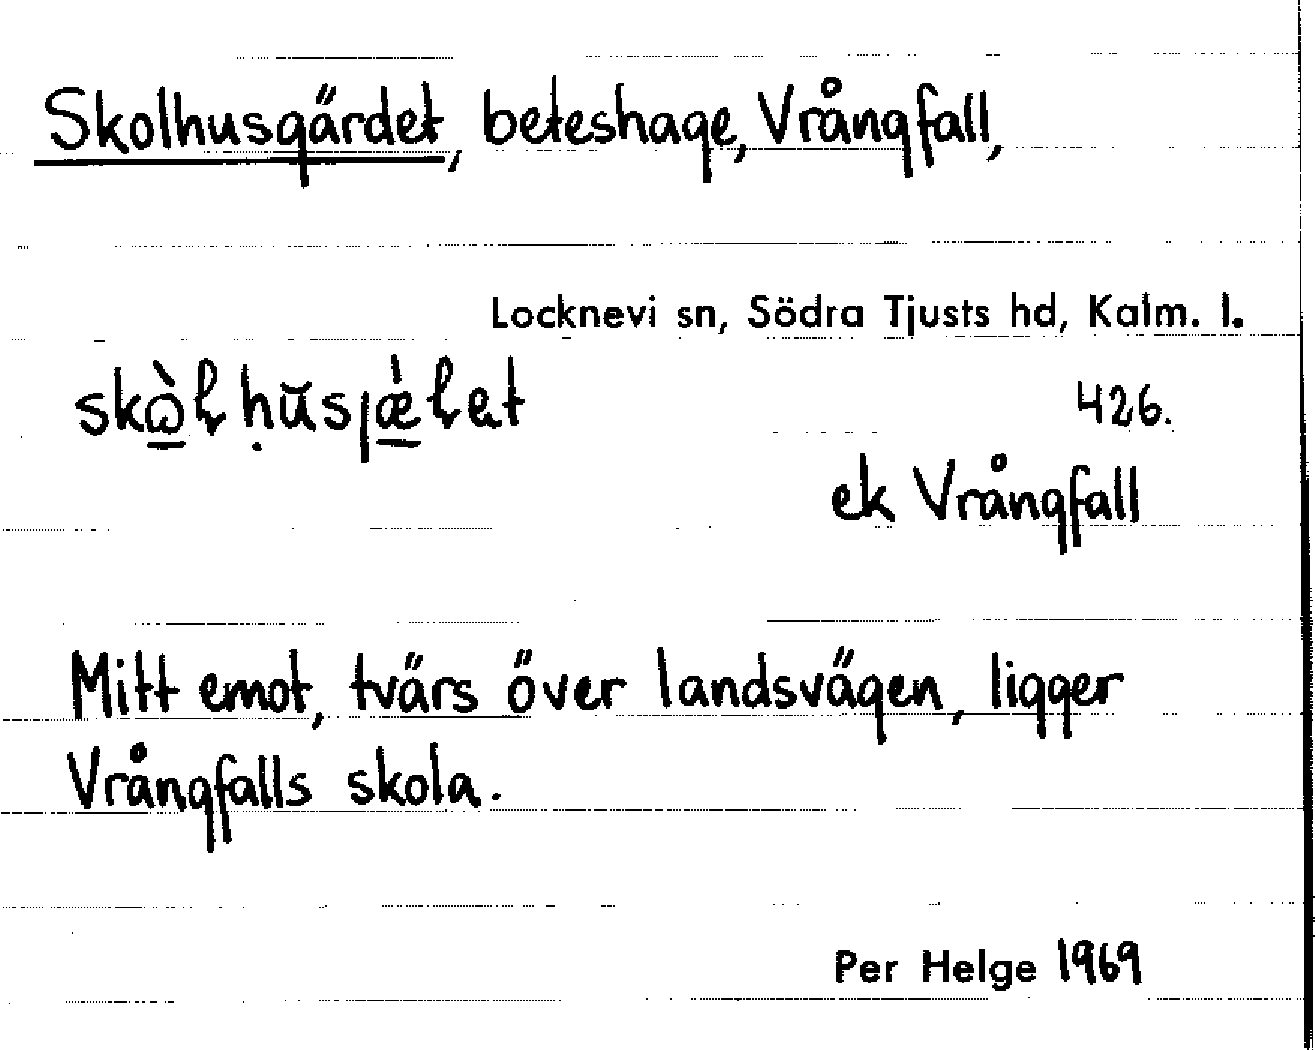 Skolhusgärdet, beteshage, Vrångfall,
Locknevi sn, Södra Tjusts hd, Kalm. l.
426.
ek Vrångfall
Mitt emot, tvärs över landsvägen, ligger
Vrångfalls skola.
Per Helge 1969